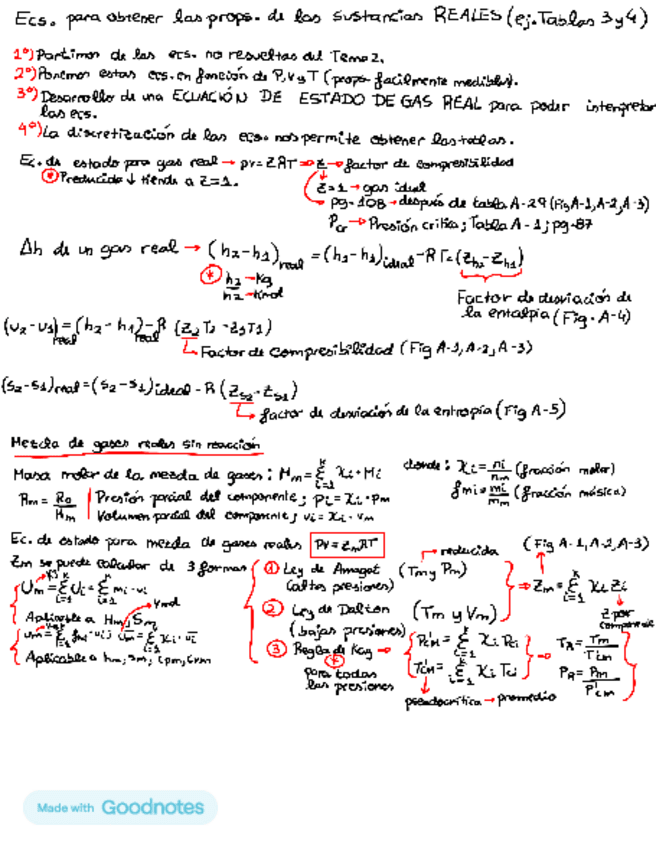 Ecs. para obtener las props. de las sustancias REALES (ej. Tablas 3 y 4)
1º) Partimos de las ecs. no resueltas del Tema 2.
2º) Ponemos estas ecs. en función de P, V y T (props. facilmente medibles).
3º) Desarrollo de una ECUACIÓN DE ESTADO DE GAS REAL para poder interpretar las ecs.
4º) La discretización de las ecs. nos permite obtener las tablas.
Ec. de estado para gas real → pv = ZRT ⇒ z → factor de compresibilidad
* Producida ↓ tiende a Z=1.
Z=1 → gas ideal
pg. 108 → después de tabla A-29 (Fig A-1, A-2, A-3)
Pcr → Presión crítica; Tabla A-1; pg. 87
Δh de un gas real → (h2-h1)real = (h2-h1)ideal - R Tc (Zh2 - Zh1)
* h2 → Kg
h2 → Kmol
Factor de desviación de
la entalpía (Fig. A-4)
(u2-u1)real = (h2-h1)real - R (Z2T2 - Z1T1)
Factor de compresibilidad (Fig A-1, A-2, A-3)
(s2-s1)real = (s2-s1)ideal - R (Zs2 - Zs1)
factor de desviación de la entropía (Fig A-5)
Mezcla de gases reales sin reacción
Masa molar de la mezcla de gases: Mm = Σ xi · Mi donde: xi = ni/nm (fracción molar)
fmi = mi/mm (fracción másica)
Rm = Ro/Mm | Presión parcial del componente; pi = xi · pm
Volumen parcial del componente; vi = xi · vm
Ec. de estado para mezcla de gases reales PV = ZmRT
Zm se puede calcular de 3 formas
① Ley de Amagat (Tm y Pm) → reducida
(altas presiones)
② Ley de Dalton (Tm y Vm)
(bajas presiones)
③ Regla de Kay →
* para todas
las presiones
(Fig A-1, A-2, A-3)
Zm = Σ xi Zi
Z por
componente
P'cm = Σ xi Pci
T'cm = Σ xi Tci
TR = Tm/T'cm
PR = Pm/P'cm
pseudocrítica → promedio
Um = Σ Ui = Σ mi · ui
Aplicable a Hm, Sm
um = Σ fmi · ui; um = Σ xi · ui
Aplicable a hm, sm, cpm, cvm
Made with Goodnotes